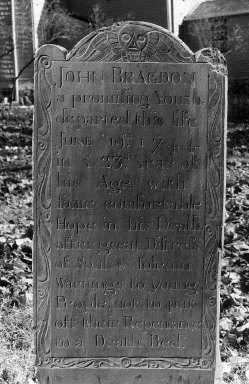 JOHN BRAGDON
a promiſing Youth,
departed this life
JUNE 19th 1744.
in ye 23d Year of
his Age, with
ſome comfortable
Hope in his Death
after great Diſtreſs
of Soul & ſolemn
Warnings to young
People, not to put
off their Repentance
to a Death Bed.